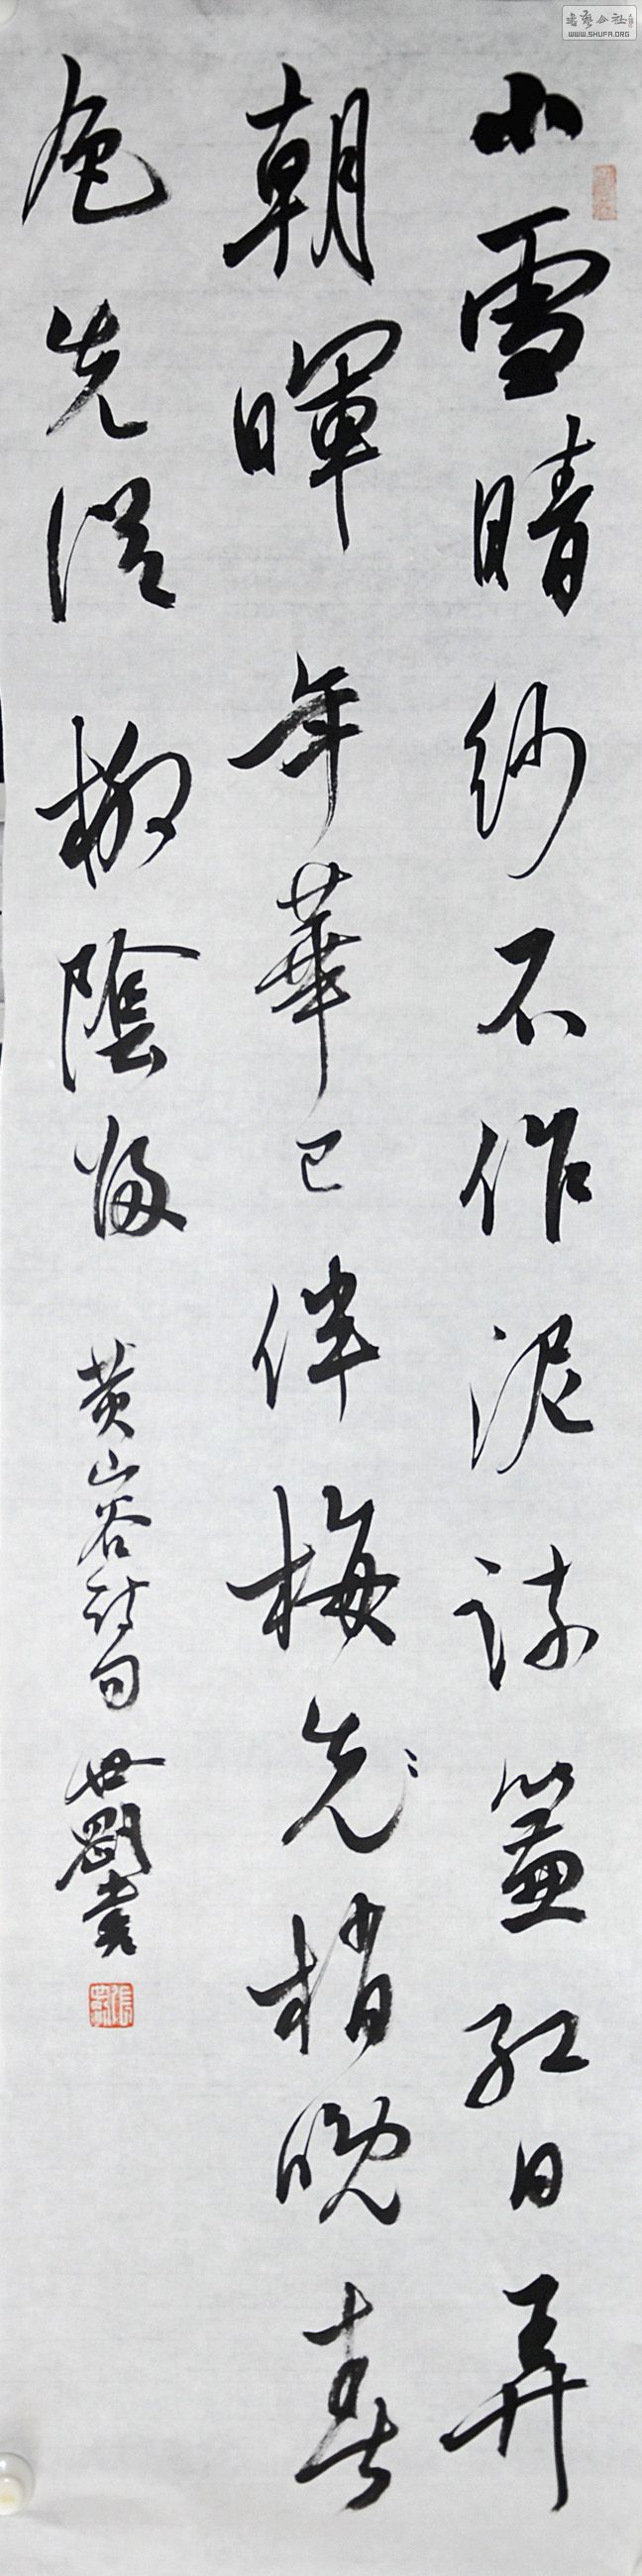 小雪晴紗不作泥疎簾紅日弄
朝暉年華已伴梅先梢晚春
色先從柳陰歸
黄山谷詩句世剛書
書藝公社
WWW.SHUFA.ORG